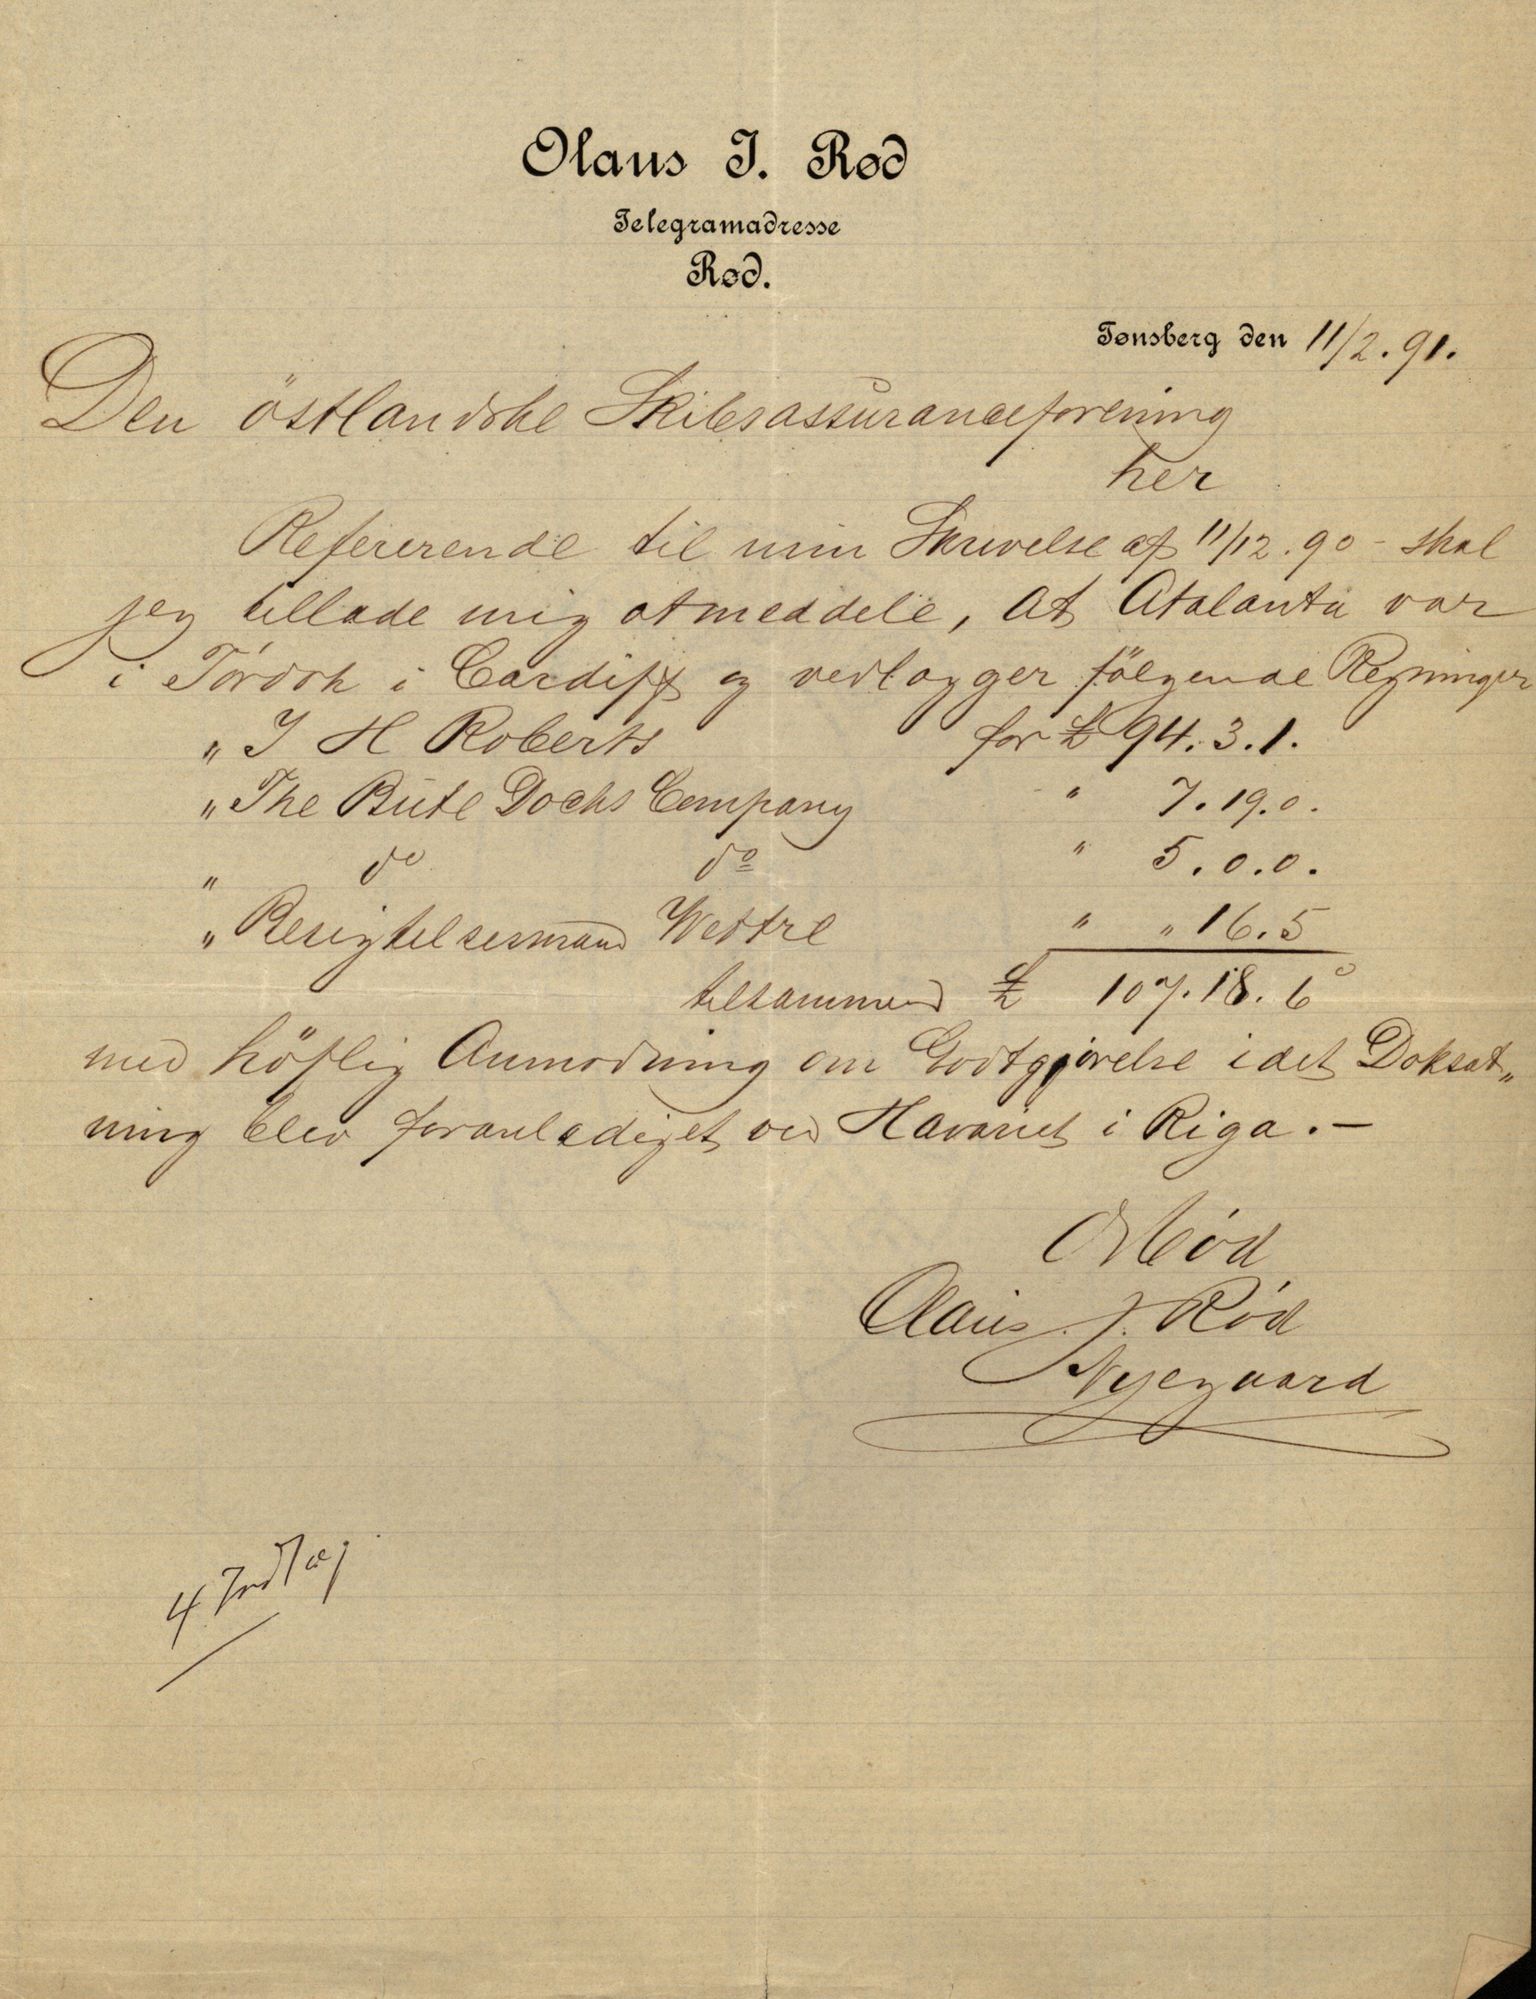 Olaus J. Rød
Telegramadresse
Rød.
Tønsberg den 11/2. 91.
Den östlandske Skibsassuranceforening
her
Refererende til min Skrivelse af 11/12. 90 - skal
jeg tillade mig at meddele, at Atalanta var
i Tørdok i Cardiff og vedlægger følgende Regninger
„ J H Roberts for £ 94. 3. 1.
„ The Bute Docks Company " 7. 19. 0.
„ do do " 5. 0. 0.
„ Besigtelsesmand Wettre " „ 16. 5
tilsammen £ 107. 18. 6
med höflig Anmodning om Godtgjørelse i det Doksæt„
ning blev foranlediget ved Havariet i Riga. —
Olaus J. Rød
Nyegaard
4 Indlæg